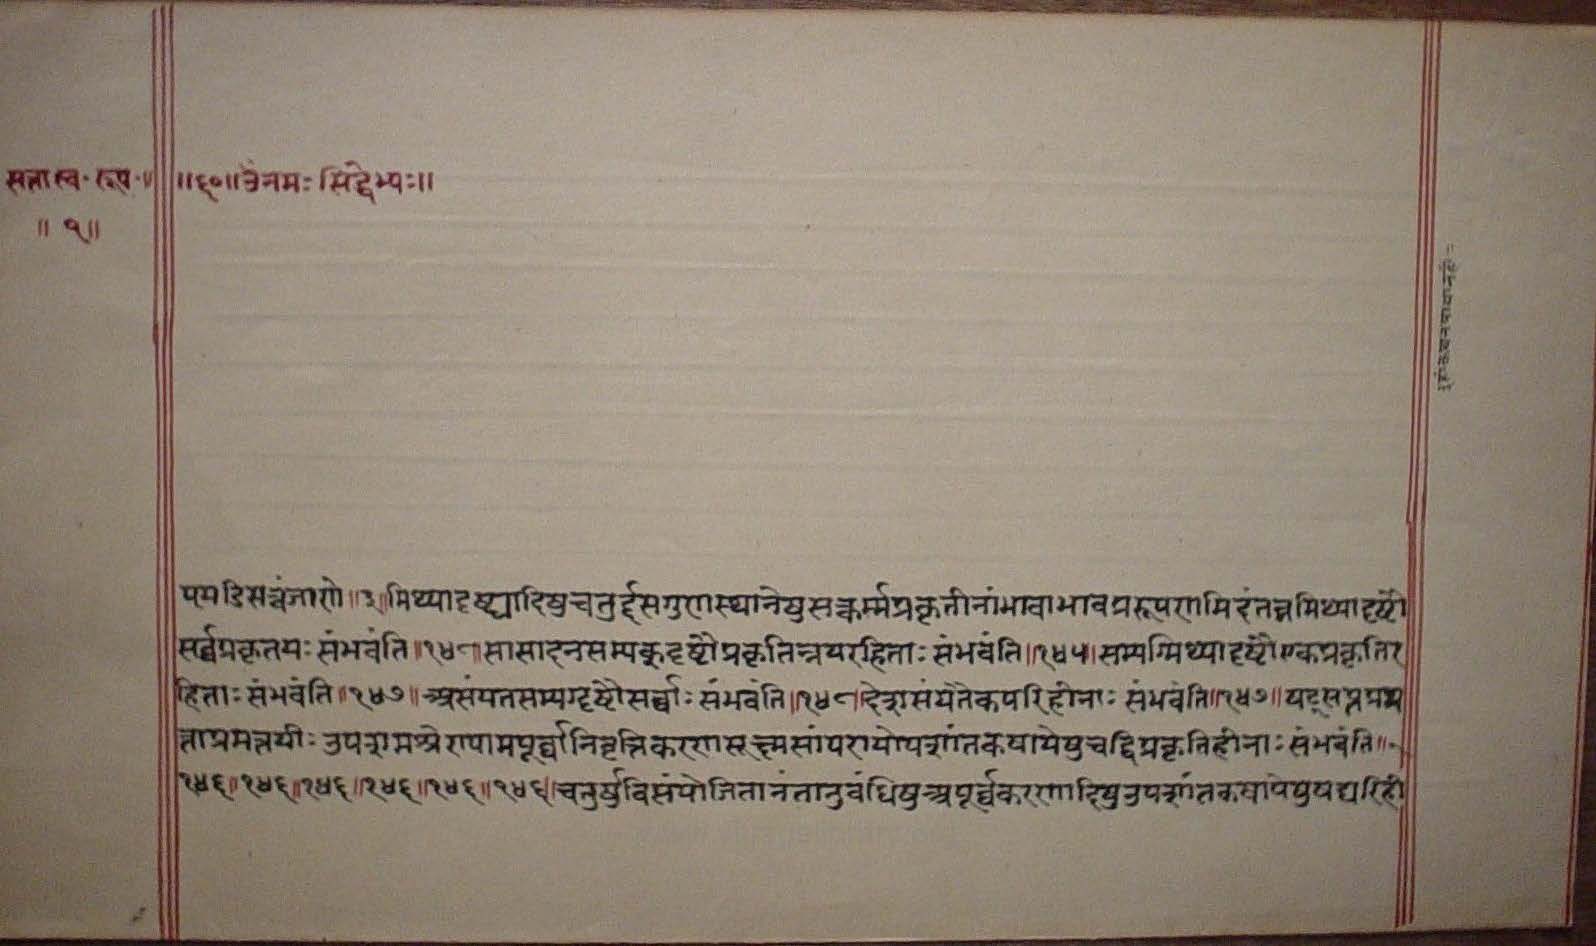 सत्तास्व॰रूप॰॥
॥ १॥
॥६०॥ उँनमः सिद्धेभ्यः॥
पयडिसत्तं जाणे॥३॥मिथ्यादृष्ट्यादिषुचतुर्द्दसगुणस्थानेषुसत्कर्म्मप्रकृतीनांभावाभावप्ररूपणमिदंतत्रमिथ्यादृष्टौ
सर्व्वप्रकृतयः संभवंति॥१४८॥सासादनसम्यक्दृष्टौप्रकृतित्रयरहिताः संभवंति॥१४५॥सम्यग्मिथ्यादृष्टौएकप्रकृतिर
हिताः संभवंति॥१४७॥असंयतसम्यग्दृष्टौसर्व्वाः संभवंति॥१४८॥देशसंयतैकपरिहीनाः संभवंति॥१४७॥
उपशमश्रेणपामपूर्व्वानिवृत्तिकरणसूक्ष्मसांपरायोपशांतकषायेषुचद्विप्रकृतिहीनाः संभवंति॥
१४६॥१४६॥१४६॥१४६॥१४६॥१४६॥चतुर्षुविसंयोजितानंतानुबंधिषुअपूर्व्वकरणादिषुउपशांतकषायेषुषट्परिही